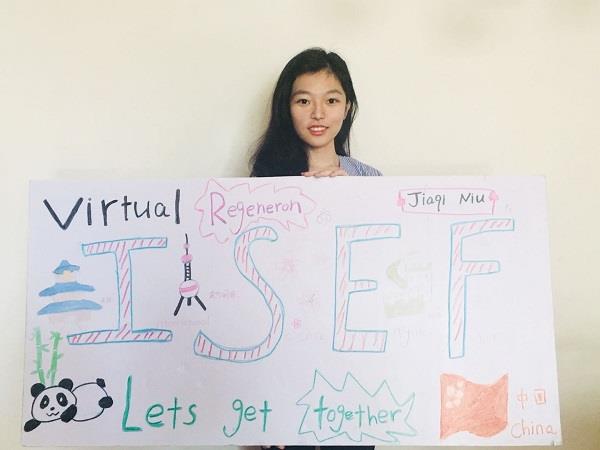 Virtual Regeneron
Jiaqi Niu
ISEF
Lets get together
中国
China